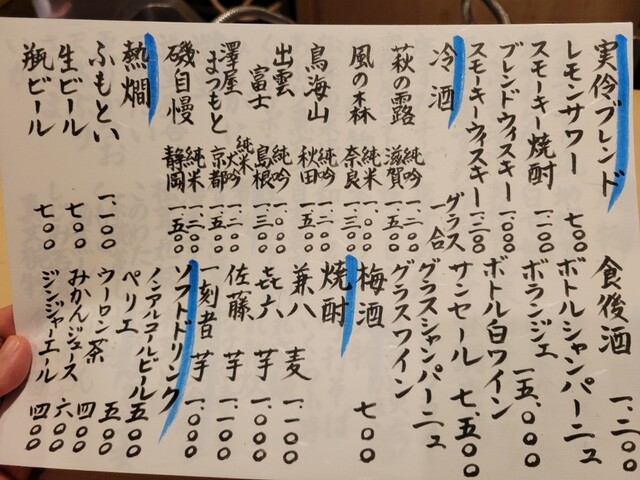 実伶ブレンド
レモンサワー 七〇〇
スモーキー焼酎 一、一〇〇
ブレンドウィスキー 一、〇〇〇
スモーキーウィスキー 一、二〇〇
冷酒 グラス 一合
萩の露 純吟 滋賀 一、二〇〇 一、五〇〇
風の森 純米 奈良 一、〇〇〇 一、三〇〇
鳥海山 純吟 秋田 一、二〇〇 一、五〇〇
出雲富士 純吟 島根 一、〇〇〇 一、三〇〇
澤屋まつもと 純米大吟 京都 一、二〇〇 一、五〇〇
磯自慢 純米 静岡 一、二〇〇 一、五〇〇
熱燗
ふもとい 一、一〇〇
生ビール 七〇〇
瓶ビール 七〇〇
食後酒 一、二〇〇
ボトルシャンパーニュ
ボランジェ 一五、〇〇〇
ボトル白ワイン
サンセール 七、五〇〇
グラスシャンパーニュ
グラスワイン
梅酒 七〇〇
焼酎
兼八 麦 一、一〇〇
㐂六 芋 一、〇〇〇
佐藤 芋 一、一〇〇
一刻者 芋 一、〇〇〇
ソフトドリンク
ノンアルコールビール 五〇〇
ペリエ 五〇〇
ウーロン茶 四〇〇
みかんジュース 六〇〇
ジンジャーエール 四〇〇